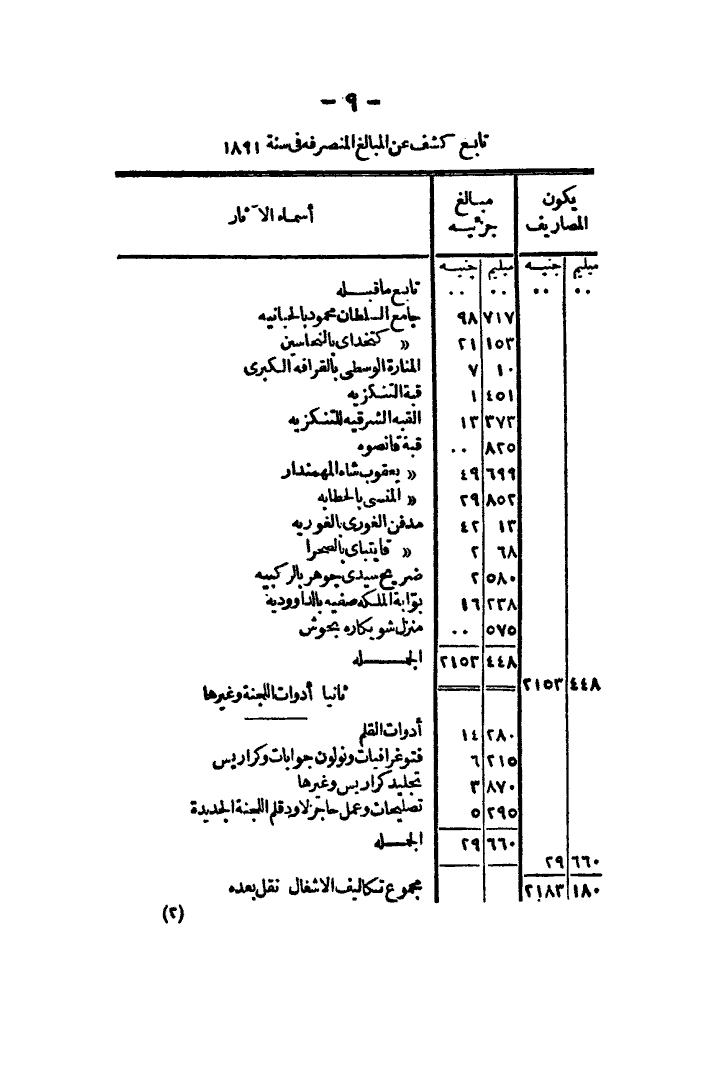 - ٩ -
تابع كشف عن المبالغ المنصرفه فى سنة ١٨٩١
يكون المصاريف | مبالغ جزئيه | أسماء الآثار
مليم جنيه | مليم جنيه
.. .. | .. .. | تابع ماقبله
٧١٧ ٩٨ جامع السلطان محمود بالحبانيه
١٥٣ ٢١ » كتخداى بالنحاسين
١٠ ٧ المنارة الوسطى بالقرافه الكبرى
٤٥١ ١ قبة التنكزيه
٣٧٣ ١٣ القبه الشرقيه للتنكزيه
٨٢٥ .. قبة قانصوه
٦٩٩ ٤٩ » يعقوب شاه المهمندار
٨٥٢ ٢٩ » المنسى بالحطابه
١٣ ٤٢ مدفن الغورى بالغوريه
٦٨ ٢ » قايتباى بالصحرا
٥٨٠ ٢ ضريح سيدى جوهر بالركبيه
٢٣٨ ٤٦ بوّابة الملكه صفيه بالداوودية
٥٧٥ .. منزل شوبكاره بحوش
٤٤٨ ٢١٥٣ الجمله
٤٤٨ ٢١٥٣ ثانيا أدوات اللجنة وغيرها
٢٨٠ ١٤ أدوات القلم
٢١٥ ٦ فتوغرافيات ونولون جوابات وكراريس
٨٧٠ ٣ تجليد كراريس وغيرها
٢٩٥ ٥ تصليحات وعمل حاجز لاود قلم اللجنة الجديدة
٦٦٠ ٢٩ الجمله
٦٦٠ ٢٩
١٨٠ ٢١٨٣ مجموع تكاليف الاشغال نقل بعده
(٢)